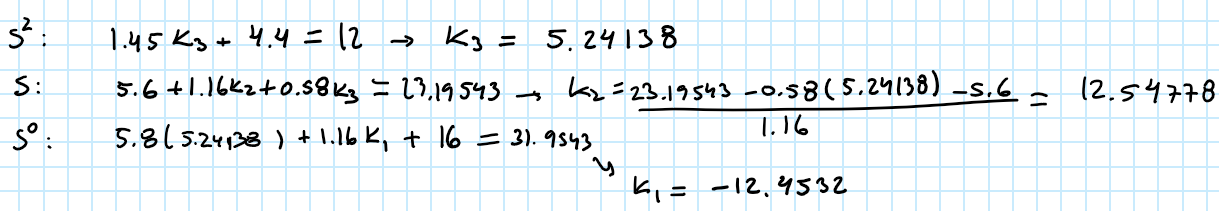 S²: 1.45 K₃ + 4.4 = 12 → K₃ = 5.24138
S: 5.6 + 1.16K₂ + 0.58K₃ = 23.19543 → K₂ = (23.19543 - 0.58(5.24138) - 5.6) / 1.16 = 12.54778
S⁰: 5.8(5.24138) + 1.16 K₁ + 16 = 31.9543
↘ K₁ = -12.4532